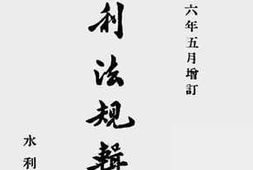 六年五月增訂
利法規輯
水利